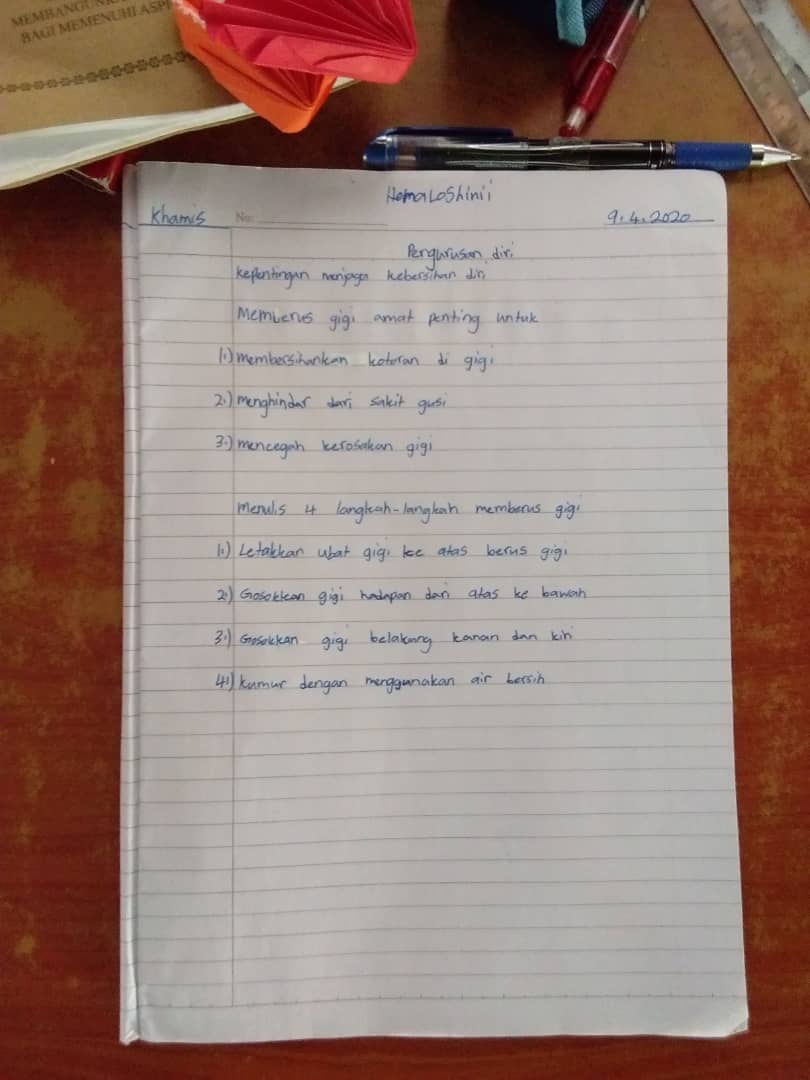 MEMBANGUNKA
BAGI MEMENUHI ASPI
HemaLoShini
Khamis No: 9.4.2020
Pengurusan diri
kepentingan menjaga kebersihan diri
Memberus gigi amat penting untuk
1.) membersihankan kotoran di gigi
2.) menghindar dari sakit gusi
3.) mencegah kerosakan gigi
menulis 4 langkah-langkah memberus gigi
1.) Letakkan ubat gigi ke atas berus gigi
2.) Gosokkan gigi hadapan dari atas ke bawah
3.) Gosokkan gigi belakang kanan dan kiri
4.) kumur dengan menggunakan air bersih